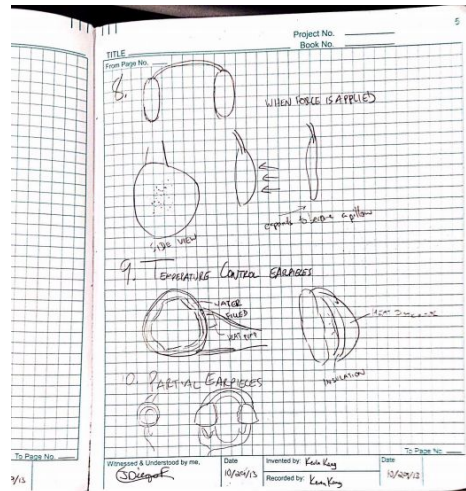 5
Project No.
Book No.
TITLE
From Page No.
8.
WHEN FORCE IS APPLIED
SIDE VIEW
expands to become a pillow
9. TEMPERATURE CONTROL EARPIECES
WATER
FILLED
HEAT
INSULATION
10. PARTIAL EARPIECES
To Page No.
To Page No.
Witnessed & Understood by me,
Date
Invented by: Kevin Kang
Date
10/20/13
Recorded by: Kevin Kang
10/20/13